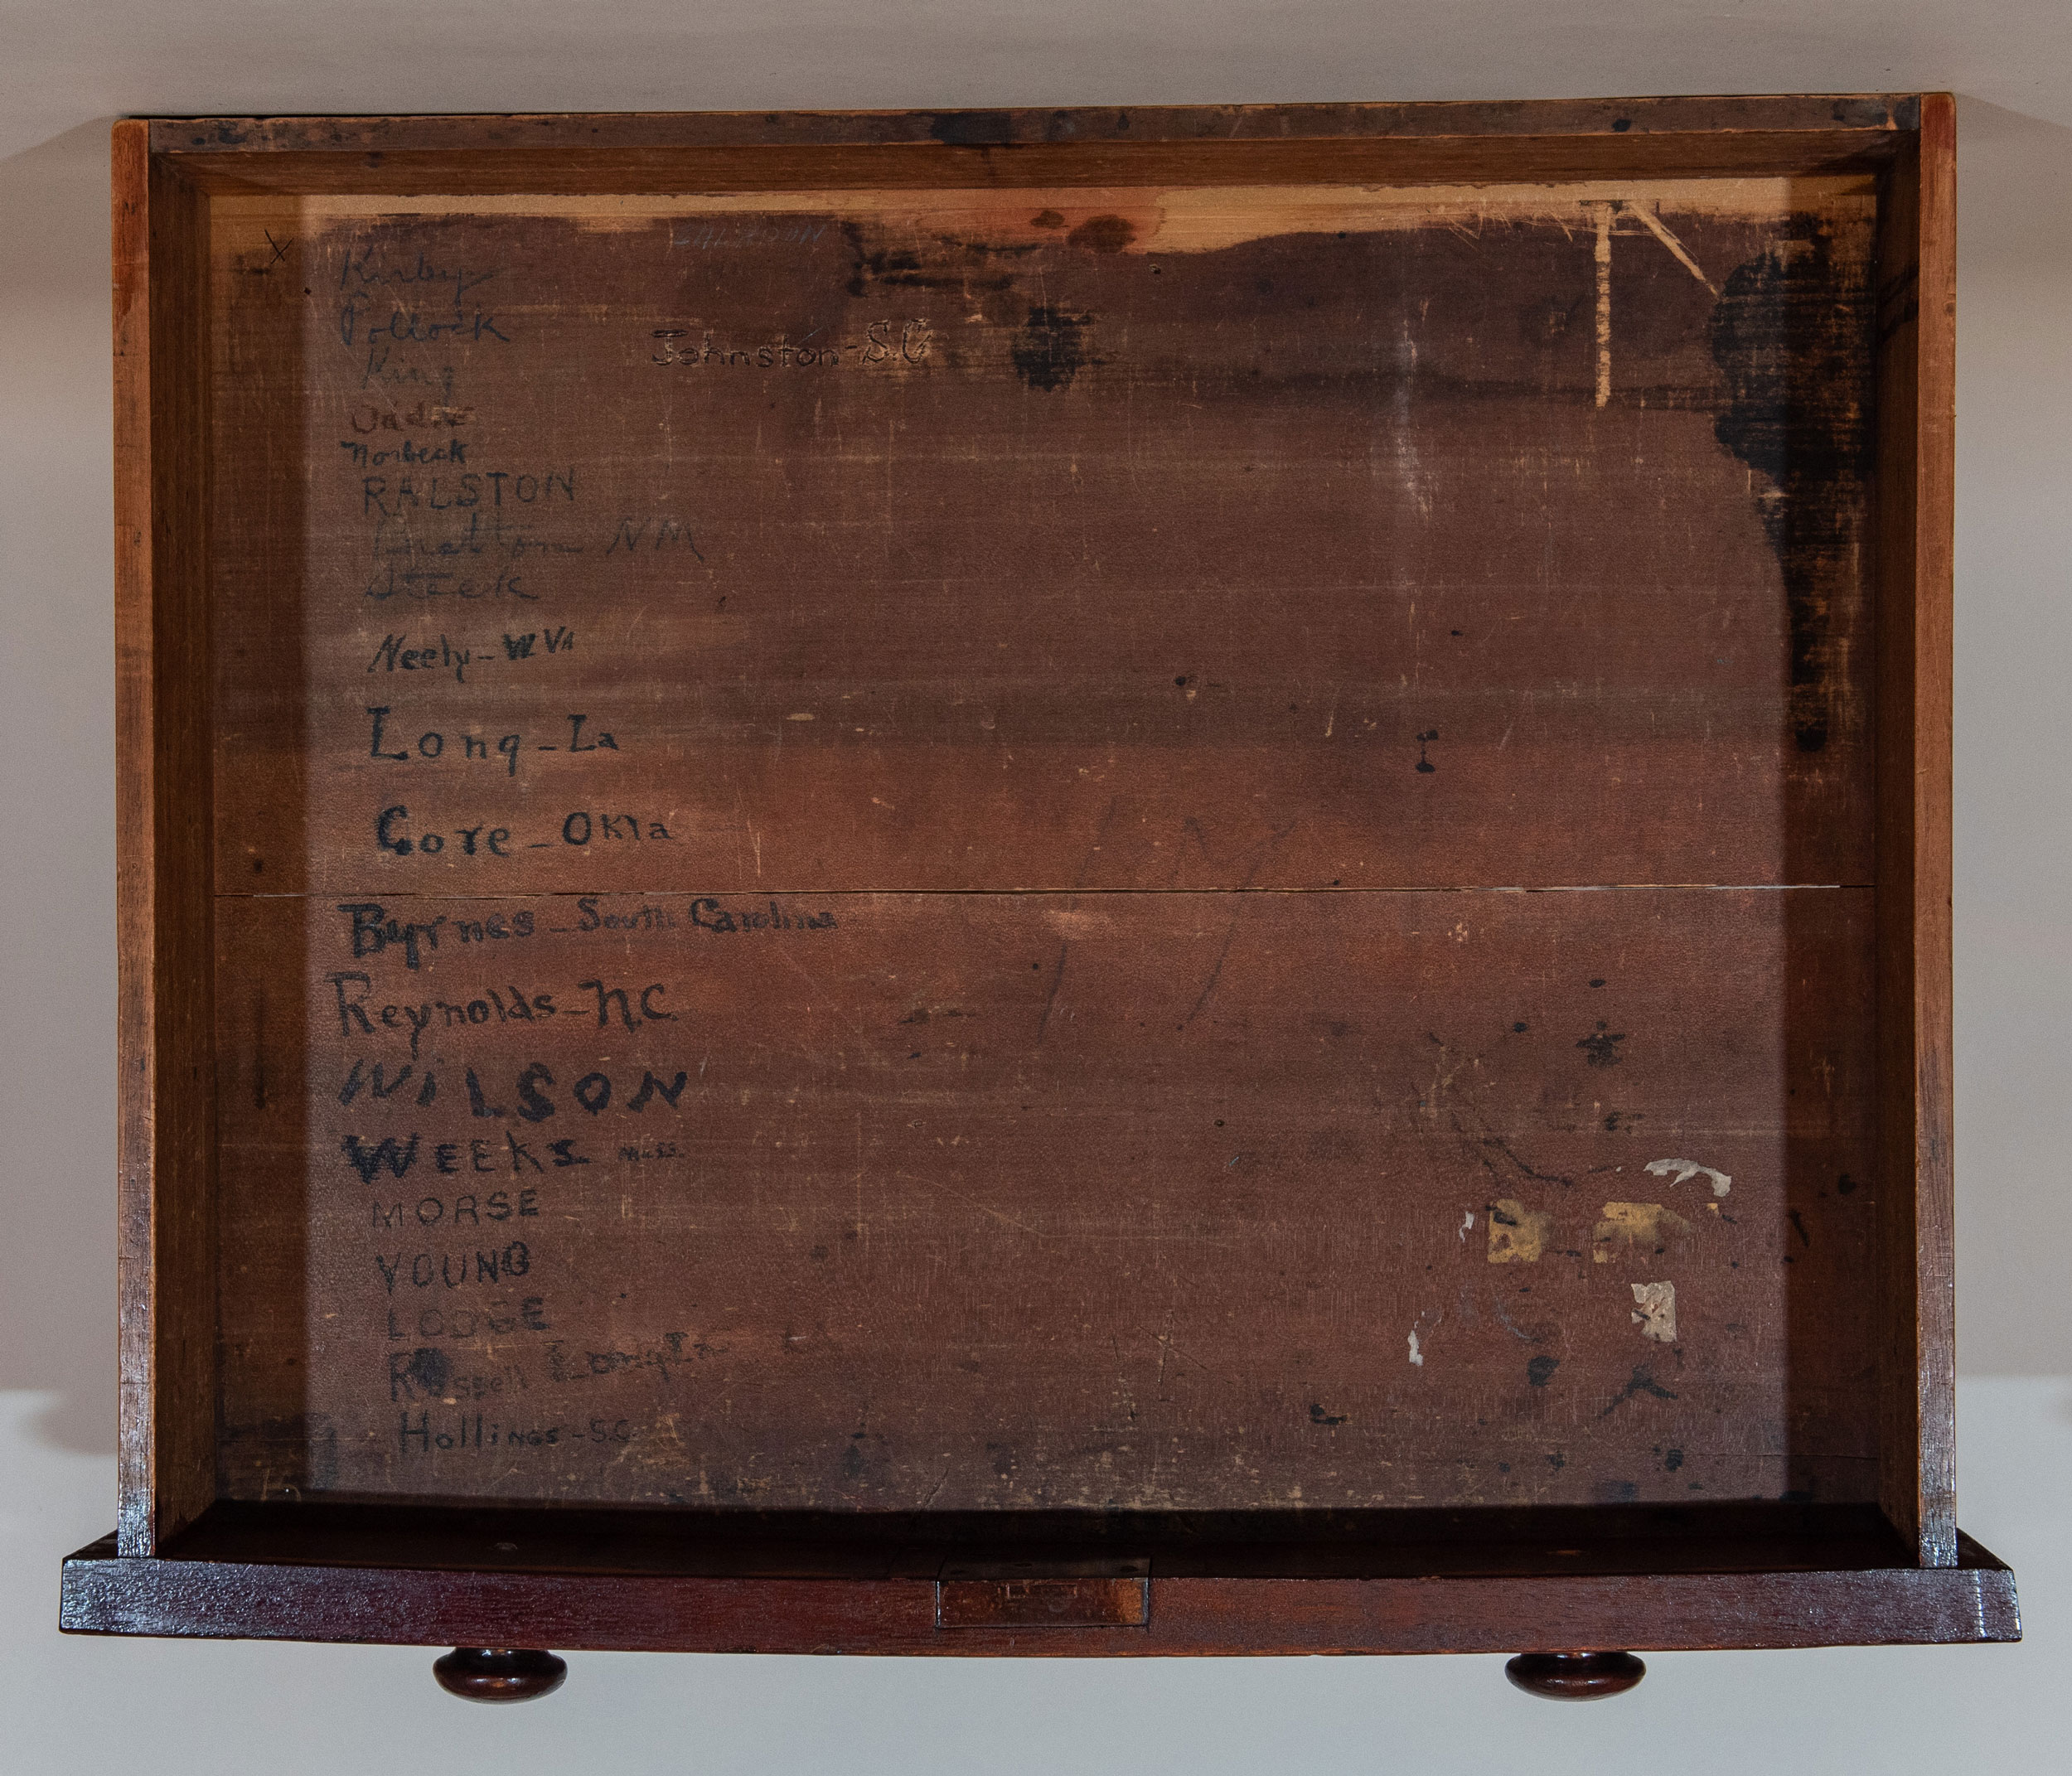 X
Kirby
Pollock
Johnston-S.C
King
Norbeck
RALSTON
Bratton NM
Steck
Neely-W VA
Long-La
Gore-Okla
Byrnes-South Carolina
Reynolds-N.C
WILSON
WEEKS Mass.
MORSE
YOUNG
LODGE
Russell Long La
Hollings-S.C.